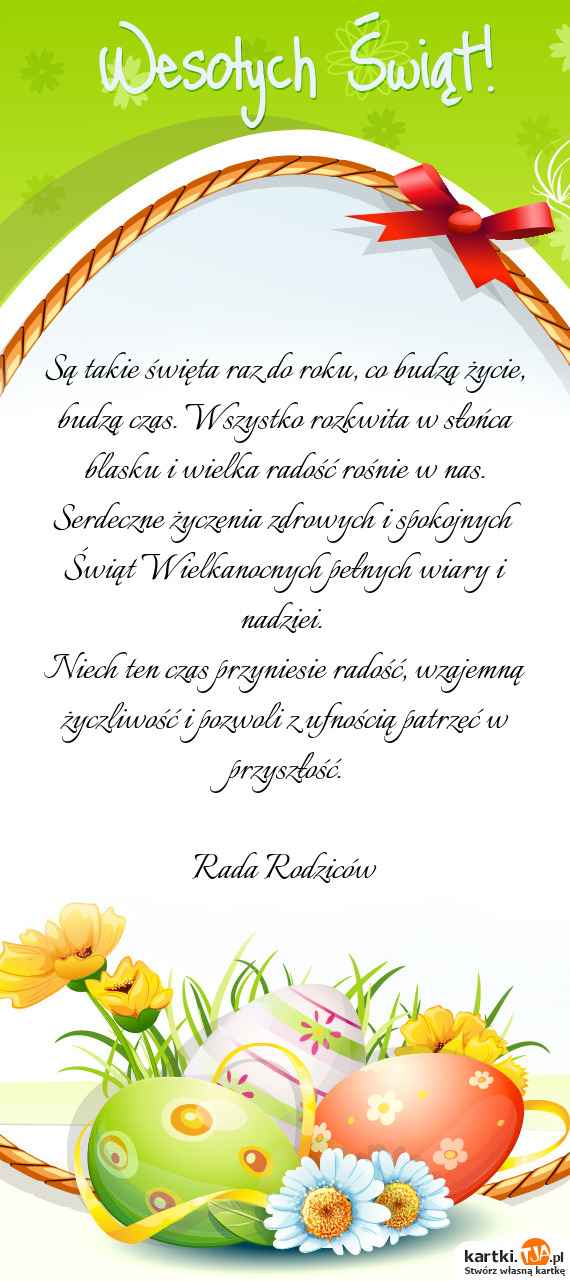 Wesołych Świąt!
Są takie święta raz do roku, co budzą życie,
budzą czas. Wszystko rozkwita w słońca
blasku i wielka radość rośnie w nas.
Serdeczne życzenia zdrowych i spokojnych
Świąt Wielkanocnych pełnych wiary i
nadziei.
Niech ten czas przyniesie radość, wzajemną
życzliwość i pozwoli z ufnością patrzeć w
przyszłość.
Rada Rodziców
kartki.TJA.pl
Stwórz własną kartkę